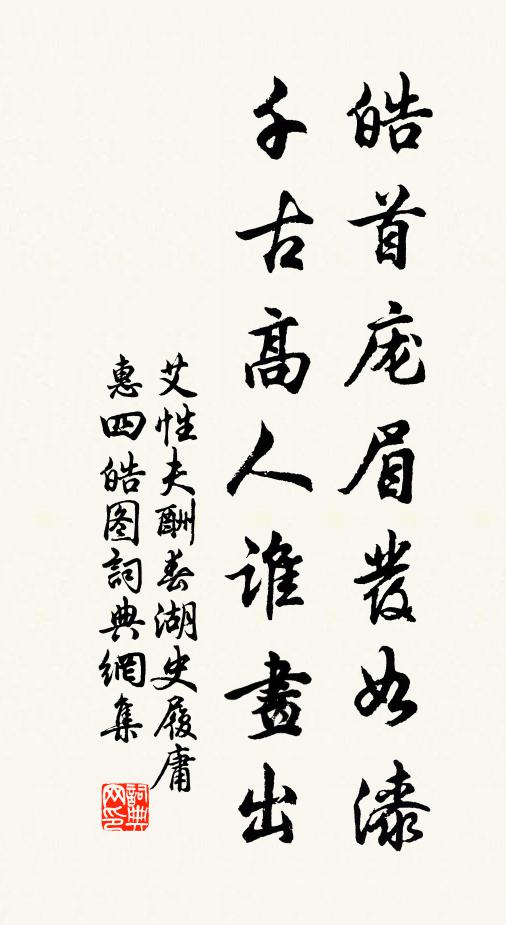 皓首庞眉發如漆
千古高人谁畫出
艾性夫酬春湖史履庸
惠四皓图詞典網集
詞典网印